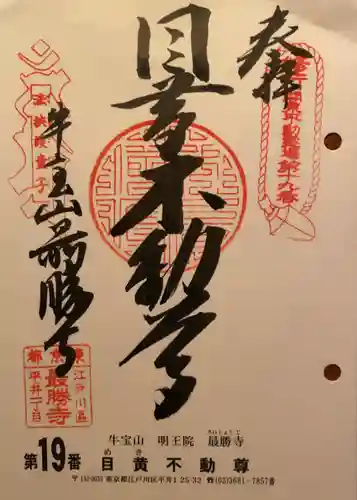 奉拝
目黄不動尊
牛宝山最勝寺
東京都
江戸川区
平井一丁目
最勝寺
牛宝山 明王院 最勝寺
さいしょうじ
第19番 目黄不動尊
めき
東京都江戸川区平井1-25-32 ☎(03)3681-7857番